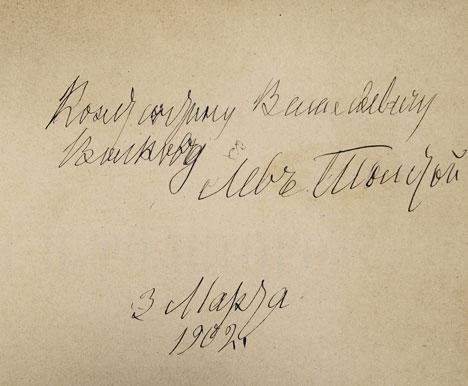 Константину Васильевичу
Волкову
Левъ Толстой
3 Марта
1902.